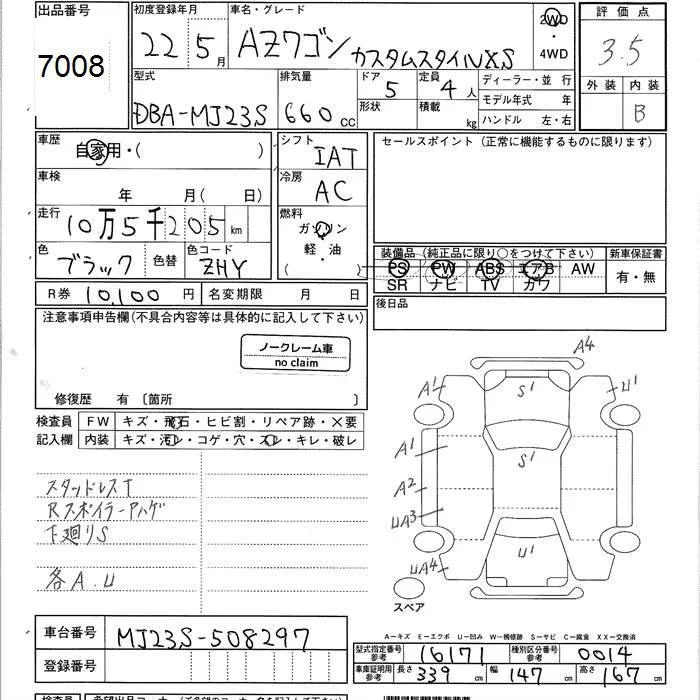 出品番号 初度登録年月 車名・グレード 2WD 評価点
7008 22 5月 AZワゴン カスタムスタイルXS 4WD 3.5
型式 排気量 ドア 5 定員 4人 ディーラー・並行 外装 内装
DBA-MJ23S 660cc 形状 積載 kg モデル年式 年 B
ハンドル 左・右
車歴 自家用・( ) シフト IAT セールスポイント (正常に機能するものに限ります)
車検 年 月( 日) 冷房 AC
走行 10万5千205km 燃料 ガソリン
軽・油
( )
色 ブラック 色替 色コード ZHY
装備品 (純正品に限り○をつけて下さい) 新車保証書
PS PW ABS エアB AW 有・無
SR ナビ TV カワ
R券 10,100円 名変期限 月 日 後日品
注意事項申告欄(不具合内容等は具体的に記入して下さい)
ノークレーム車
no claim
修復歴 有 〔箇所 〕
検査員 FW キズ・飛石・ヒビ割・リペア跡・×要
記入欄 内装 キズ・汚レ・コゲ・穴・スレ・キレ・破レ
スタッドレスT
RスポイラーPハゲ
下廻りS
各A.U
A4
A1 S1 U1
A1 S1
A2
UA3
U1
UA4
スペア
A―キズ E―エクボ U―凹み W―補修跡 S―サビ C―腐食 XX―交換済
車台番号 MJ23S-508297
登録番号
型式指定番号 参考 16171 種別区分番号 参考 0014
車庫証明用 参考 長さ 339cm 幅 147cm 高さ 167cm